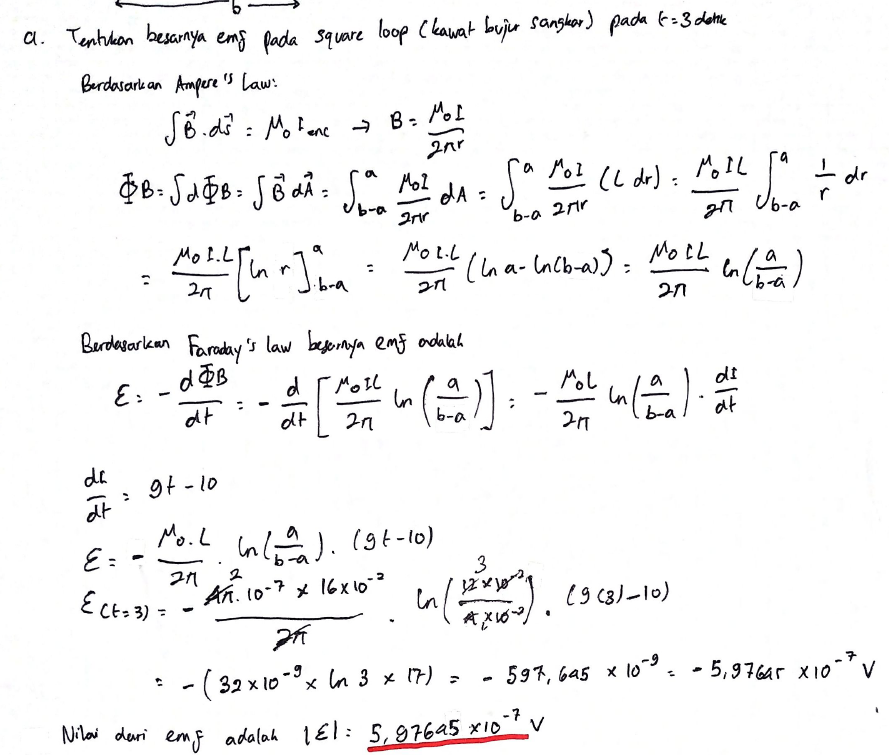 b
a. Tentukan besarnya emf pada square loop (kawat bujur sangkar) pada t = 3 detik
Berdasarkan Ampere's Law:
∫B⃗.ds⃗ = μ₀ I enc → B = μ₀I / 2πr
ΦB = ∫dΦB = ∫B⃗ dA⃗ = ∫_{b-a}^{a} μ₀I / 2πr dA = ∫_{b-a}^{a} μ₀I / 2πr (L dr) = μ₀IL / 2π ∫_{b-a}^{a} 1/r dr
= μ₀I.L / 2π [ln r]_{b-a}^{a} = μ₀I.L / 2π (ln a - ln(b-a)) = μ₀IL / 2π ln(a / b-a)
Berdasarkan Faraday's law besarnya emf adalah
ε = - dΦB / dt = - d/dt [μ₀IL / 2π ln(a / b-a)] = - μ₀L / 2π ln(a / b-a) . dI/dt
dI/dt = 9t - 10
ε = - μ₀.L / 2π . ln(a / b-a). (9t-10)
ε(t=3) = - 4π.10⁻⁷ × 16×10⁻² / 2π . ln(12×10⁻² / 4×10⁻²). (9(3)-10)
= -(32×10⁻⁹ × ln 3 × 17) = - 597,645 × 10⁻⁹ = - 5,97645 ×10⁻⁷ V
Nilai dari emf adalah |ε| = 5,97645 ×10⁻⁷ V